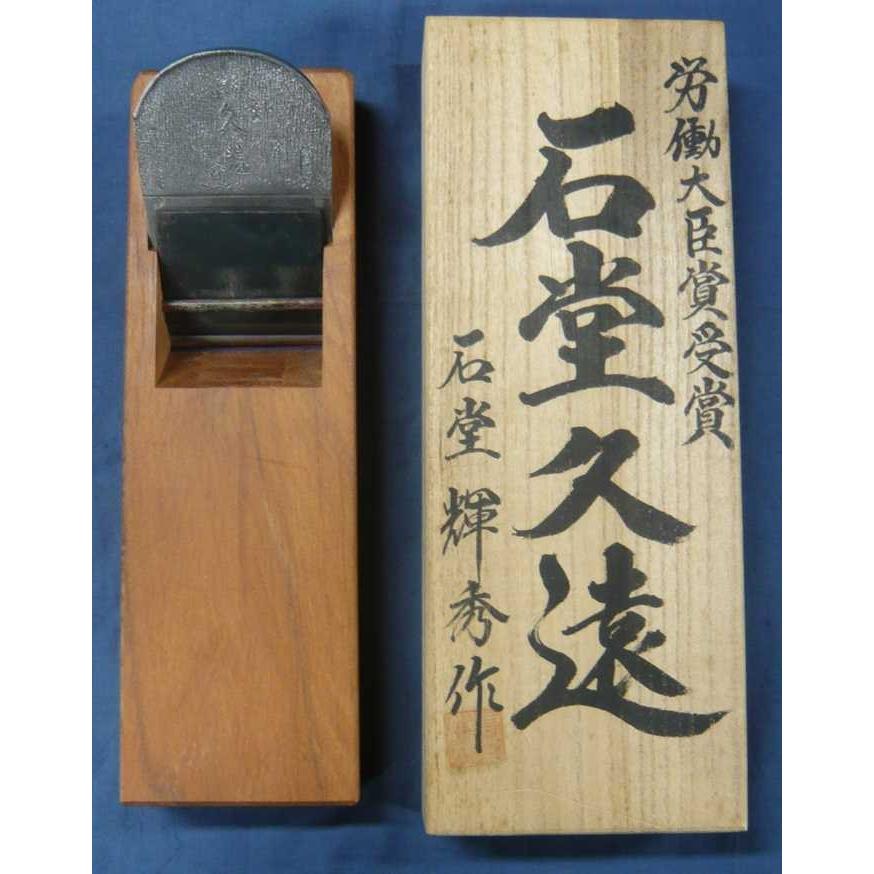 労働大臣賞受賞
石堂久遠
石堂輝秀作
久遠